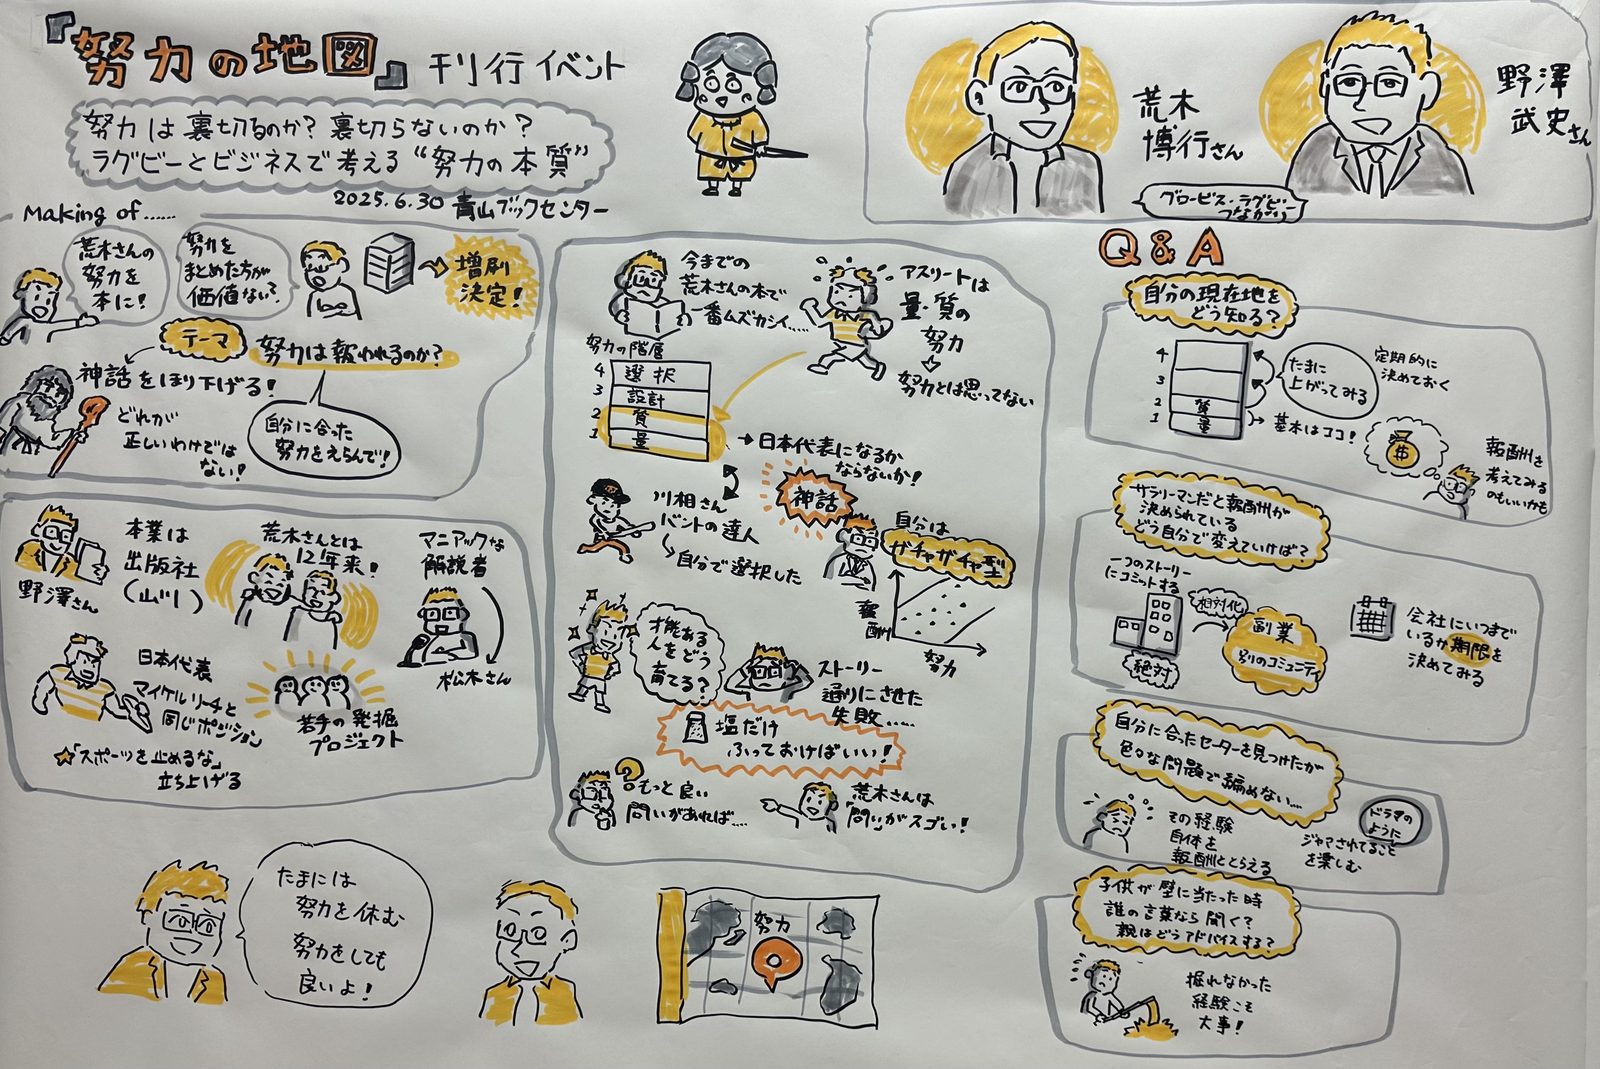 『努力の地図』刊行イベント
努力は裏切るのか？裏切らないのか？
ラグビーとビジネスで考える“努力の本質”
2025.6.30 青山ブックセンター
荒木
博行さん
野澤
武史さん
グロービス・ラグビー
つながり
Making of……
荒木さんの
努力を
本に！
努力を
まとめた方が
価値ない？
増刷
決定！
テーマ
努力は報われるのか？
神話をほり下げる！
どれが
正しいわけでは
ない！
自分に合った
努力をえらんで！
野澤さん
本業は
出版社
(山川)
荒木さんとは
12年来！
マニアックな
解説者
松木さん
日本代表
マイケルリーチと
同じポジション
若手の発掘
プロジェクト
☆「スポーツを止めるな」
立ち上げる
今までの
荒木さんの本で
一番ムズカシイ……
アスリートは
量・質の
努力
努力とは思ってない
努力の階層
4 選択
3 設計
2 質
1 量
→日本代表になるか
ならないか！
神話
川相さん
バントの達人
自分で選択した
自分は
ガチャガチャ型
報酬
努力
才能ある
人をどう
育てる？
ストーリー
通りにさせた
失敗……
塩だけ
ふっておけばいい！
?
もっと良い
問いがあれば……
荒木さんは
「問い」がスゴい！
Q&A
自分の現在地を
どう知る？
4
3
2 質
1 量
たまに
上がってみる
定期的に
決めておく
基本はココ！
$
報酬を
考えてみる
のもいいかも
サラリーマンだと報酬が
決められている
どう自分で変えていけば？
一つのストーリー
にコミットする
絶対
相対化
副業
別のコミュニティ
会社にいつまで
いるか期限を
決めてみる
自分に合ったセーターを見つけたが
色々な問題で編めない……
その経験
自体を
報酬ととらえる
ドラマの
ように
ジャマされてることを
楽しむ
子供が壁に当たった時
誰の言葉なら聞く？
親はどうアドバイスする？
掘れなかった
経験こそ
大事！
たまには
努力を休む
努力をしても
良いよ！
努力